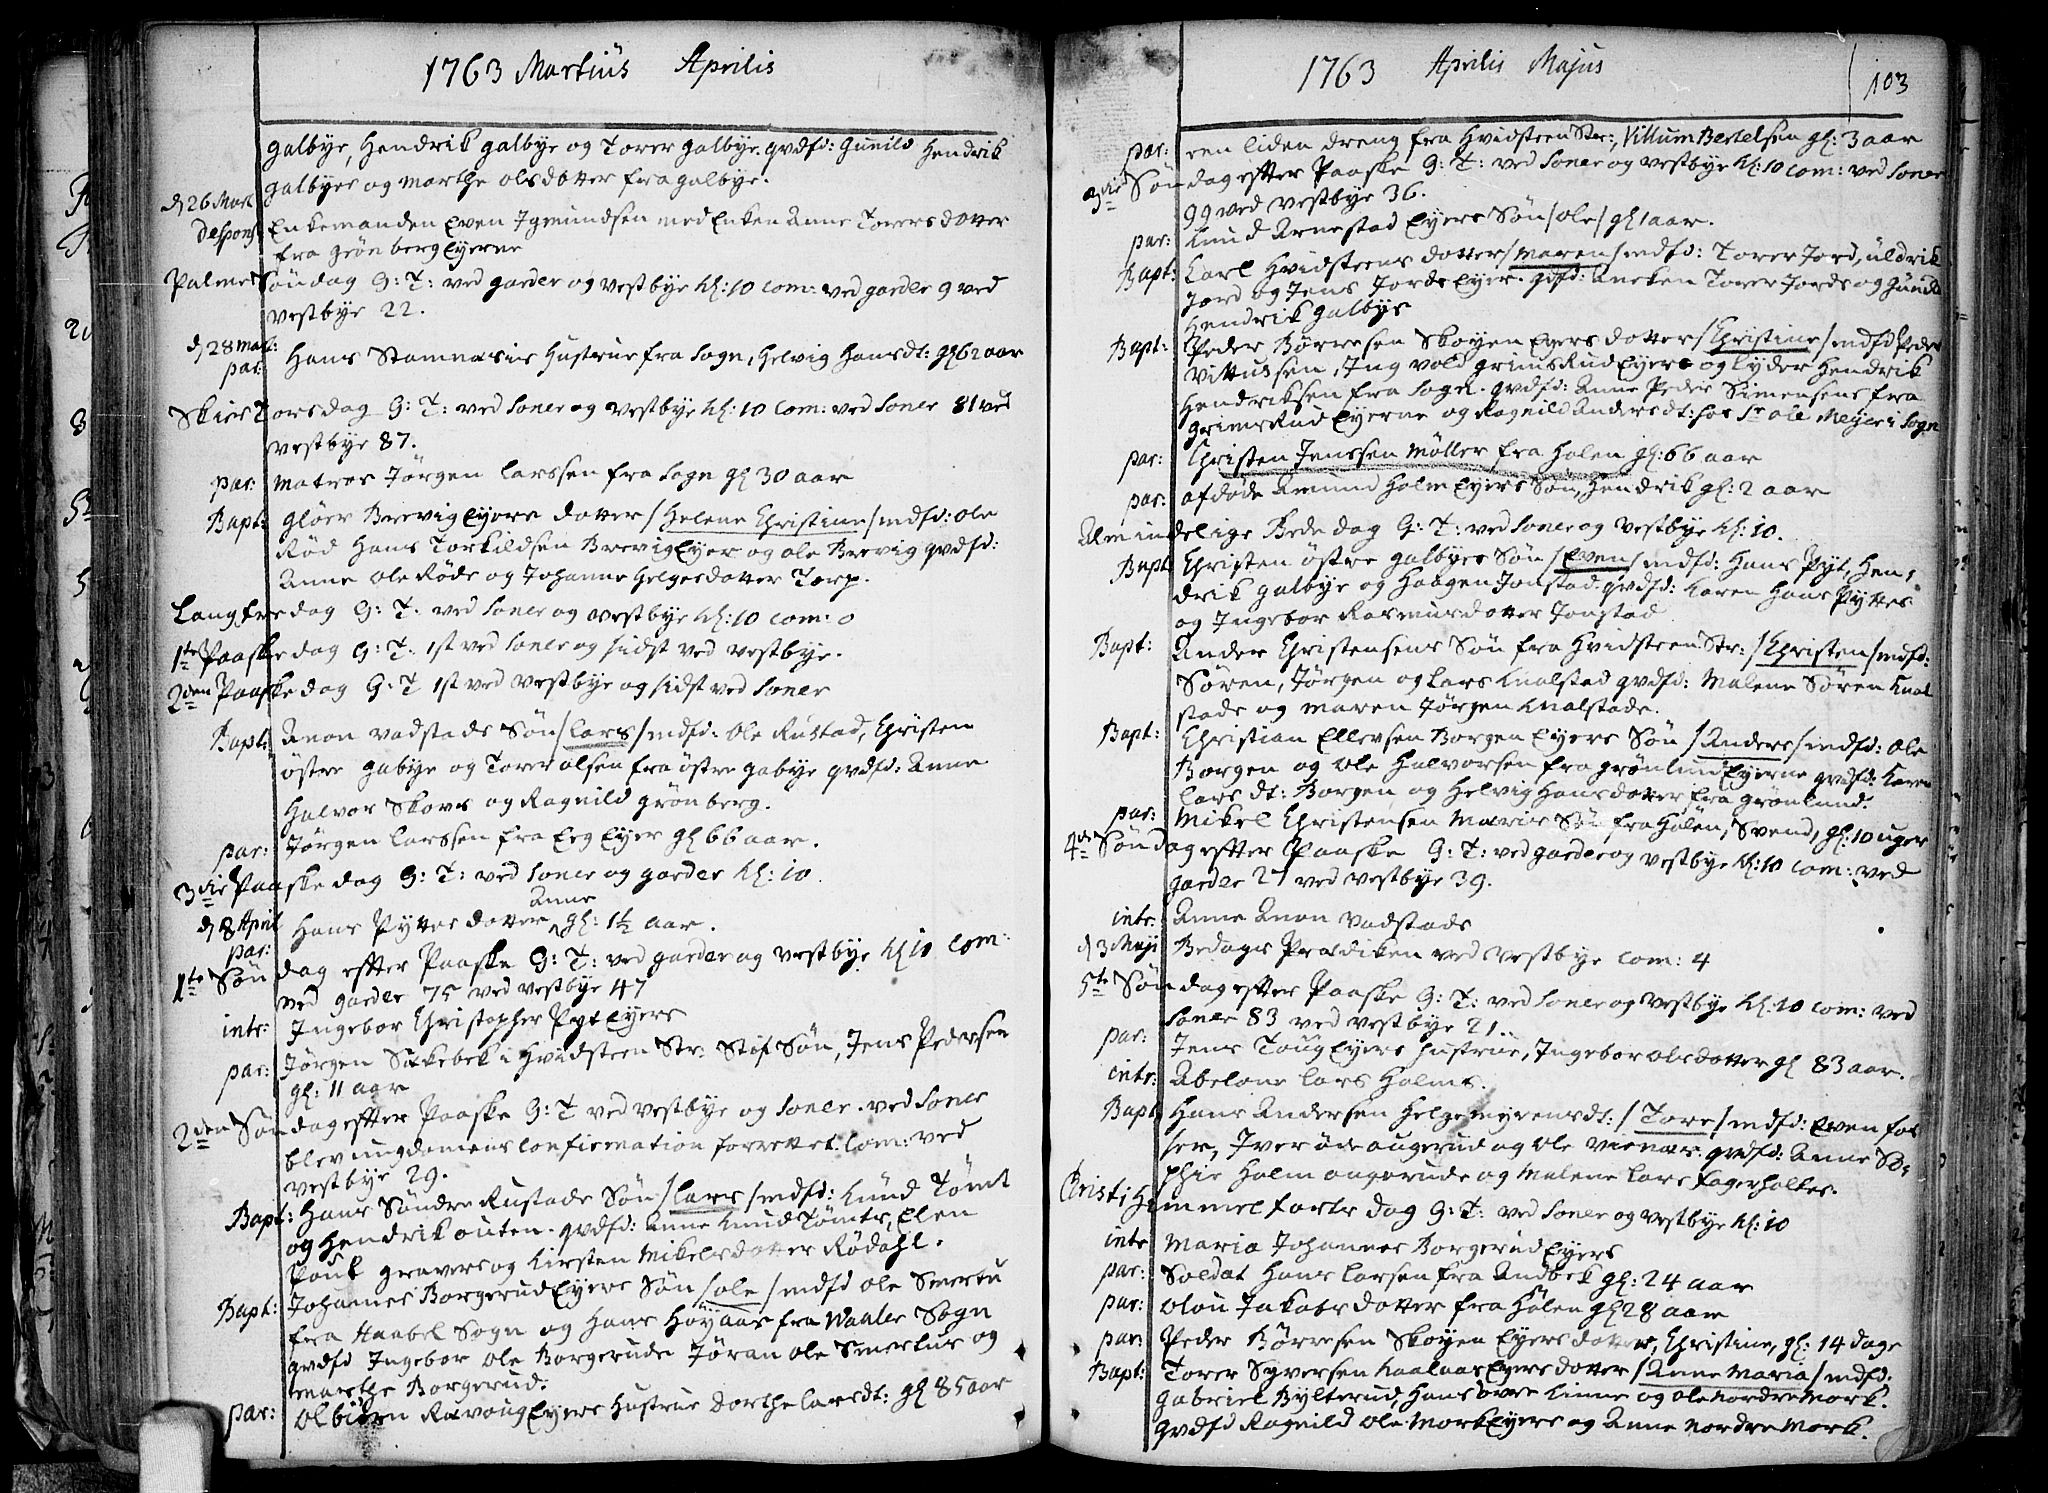 1763 Martius Aprilis
galbye, Hendrik galbye og Torer galbye. qvdfd: Gunild Hendrik
galbyes og marthe olsdotter fra galbye.
d 26 Mart
Despons. Enkemanden Even Igmundsen med Enken Anne Torersdotter
fra grönberg Eyerne
Palme Söndag G: T: ved garder og vestbye kl: 10 com: ved garder 9 ved
vestbye 22.
d 28 Mart:
par: Hans Stamnæsis Hustrue fra Sogn, Helvig Hansdt: gl 62 aar
Skier Torsdag G: T: ved Soner og vestbye kl: 10 com: ved Soner 81 ved
vestbye 87.
par: matros Jörgen larssen fra Sogn gl 30 aar
Bapt: Glöer Brevig Eyers dotter / Helene Christine / mdfd: ole
Röd Hans Torkildsen Brevig Eyer og ole Brevig qvdfd:
Anne ole Röds og Johanne Helgesdotter Torp.
Langfredag G: T: ved Soner og vestbye kl: 10 com: 0
1te Paaskedag G: T: 1st ved Soner og sidst ved vestbye.
2den Paaskedag G: T 1st ved vestbye og sidst ved Soner
Bapt: Anon vadstads Sön / lars / mdfd: ole Rustad, Christen
östre gabye og Torer olsen fra östre gabye qvdfd: Anne
Halvor Skovs og Ragnild grönberg.
par: Jörgen larssen fra Eeg Eyer gl 66 aar.
3die Paaskedag G: T: ved Soner og garder kl: 10
Anne
d 8 April Hans Pyttes dotter gl: 1½ aar.
par:
1te Söndag efter Paaske G: T: ved garder og vestbye kl 10 com:
ved garder 75 ved vestbye 47
intr: Ingebor Christopher Pyt Eyers
par: Jörgen Sækebek i Hvidsteen Str: Stif Sön, Jens Pedersen
gl: 11 aar
2den Söndag efter Paaske G: T ved vestbye og Soner. ved Soner
blev ungdomens Confirmation forrettet. Com: ved
vestbye 29.
Bapt: Hans Söndre Rustads Sön / lars / mdfd: Knud Tömt
og Hendrik outen. qvdfd: Anne Knud Tömts, Elen
Poul gravers og Kirsten Mikelsdotter Rödahl.
Bapt: Johannes Borgerud Eyers Sön / ole / mdfd ole Smertu
fra Haabel Sogn og Hans Höyaas fra Waaler Sogn
qvdfd Ingebor ole Borgeruds Jöran ole Smertus og
marthe Borgerud.
par: olbiörn Ravoug Eyers Hustrue Dorthe larsdt: gl 85 aar
1763 Aprilis Majus 103
par: een liden dreng fra Hvidsteen Str:, Villum Bertelsen gl: 3 aar
3die Söndag efter Paaske G: T: ved Soner og vestbye kl: 10 com: ved Soner
99 ved vestbye 36.
par: Knud Arnestad Eyers Sön / ole / gl 1 aar.
Bapt: Carl Hvidsteens dotter / maren / mdfd: Torer Jord, uldrik
Jord og Jens Jords Eyer. qdfd: Aneken Torer Jords og Gunild
Hendrik galbys
Bapt: Peder Börresen Skoyen Eyers dotter / Christine / mdfd Peder
Vittussen, Ingvold grimsRud Eyer og Lyder Hendrik
Hendriksen fra Sogn. qvdfd: Anne Peder Simensens fra
grimsRud Eyerne og Ragnild Andersdt: hos Sr ole Meyer i Sogn
par: Christen Jenssen Möller fra Holen gl: 66 aar
par: afdöde Amund Holm Eyers Sön, Hendrik gl: 2 aar
Almindelige Bededag G: T: ved Soner og vestbye kl: 10.
Bapt Christen östre galbyes Sön / Even / mdfd: Hans Pyt, Hen-
drik galbye og Haagen Jonstad. qvdfd: Karen Hans Pyttes
og Ingebor Rasmusdotter Jonstad
Bapt: Ander Christensens Sön fra Hvidsteen Str: / Christen / mdfd:
Sören, Jörgen og lars Knalstad qvdfd: Malene Sören Knal
stads og maren Jörgen Knalstads.
Bapt: Christian Ellevsen Borgen Eyers Sön / Anders / mdfd: ole
Borgen og ole Halvorsen fra grönlund Eyerne qvdfd: Karen
larsdt: Borgen og Helvig Hansdotter fra grönlund.
par: Mikel Christensen Maries Sön fra Hölen, Svend, gl: 10 uger
4de Söndag efter Paaske G: T: ved garder og vestbye kl: 10 com: ved
garder 27 ved vestbye 39.
intr: Anne Anon vadstads
d 3 Maji Bedags Prædiken ved vestbye com: 4
5te Söndag efter Paaske G: T: ved Soner og vestbye kl: 10 com: ved
Soner 83 ved vestbye 21.
par: Jens Toug Eyers hustrue, Ingebor olsdotter gl 83 aar.
intr: Abelone lars Holms.
Bapt Hans Andersen Helgemyrensdt: / Tore / mdfd: Even fos
ser, Iver ödeaugerud og ole vienæs. qvdfd: Anne So-
phie Holm angeruds og Malene lars fagerholtes.
Christi Himmelfarts dag G: T: ved Soner og vestbye kl: 10
intr Maria Johannes Borgerud Eyers
par: Soldat Hans larsen fra Andbek gl: 24 aar
par: olou Jakobsdotter fra Hölen gl 28 aar
par: Peder Börresen Skoyen Eyers dotter, Christine, gl: 14 dage
Bapt: Torer Syversen Kaalaas Eyers dotter / Anne Maria / mdfd:
Gabriel Bylterud, Hans övre Kinne og ole Nordre Mork.
qvdfd Ragnild ole Mork Eyers og Anne Nordre Mork.